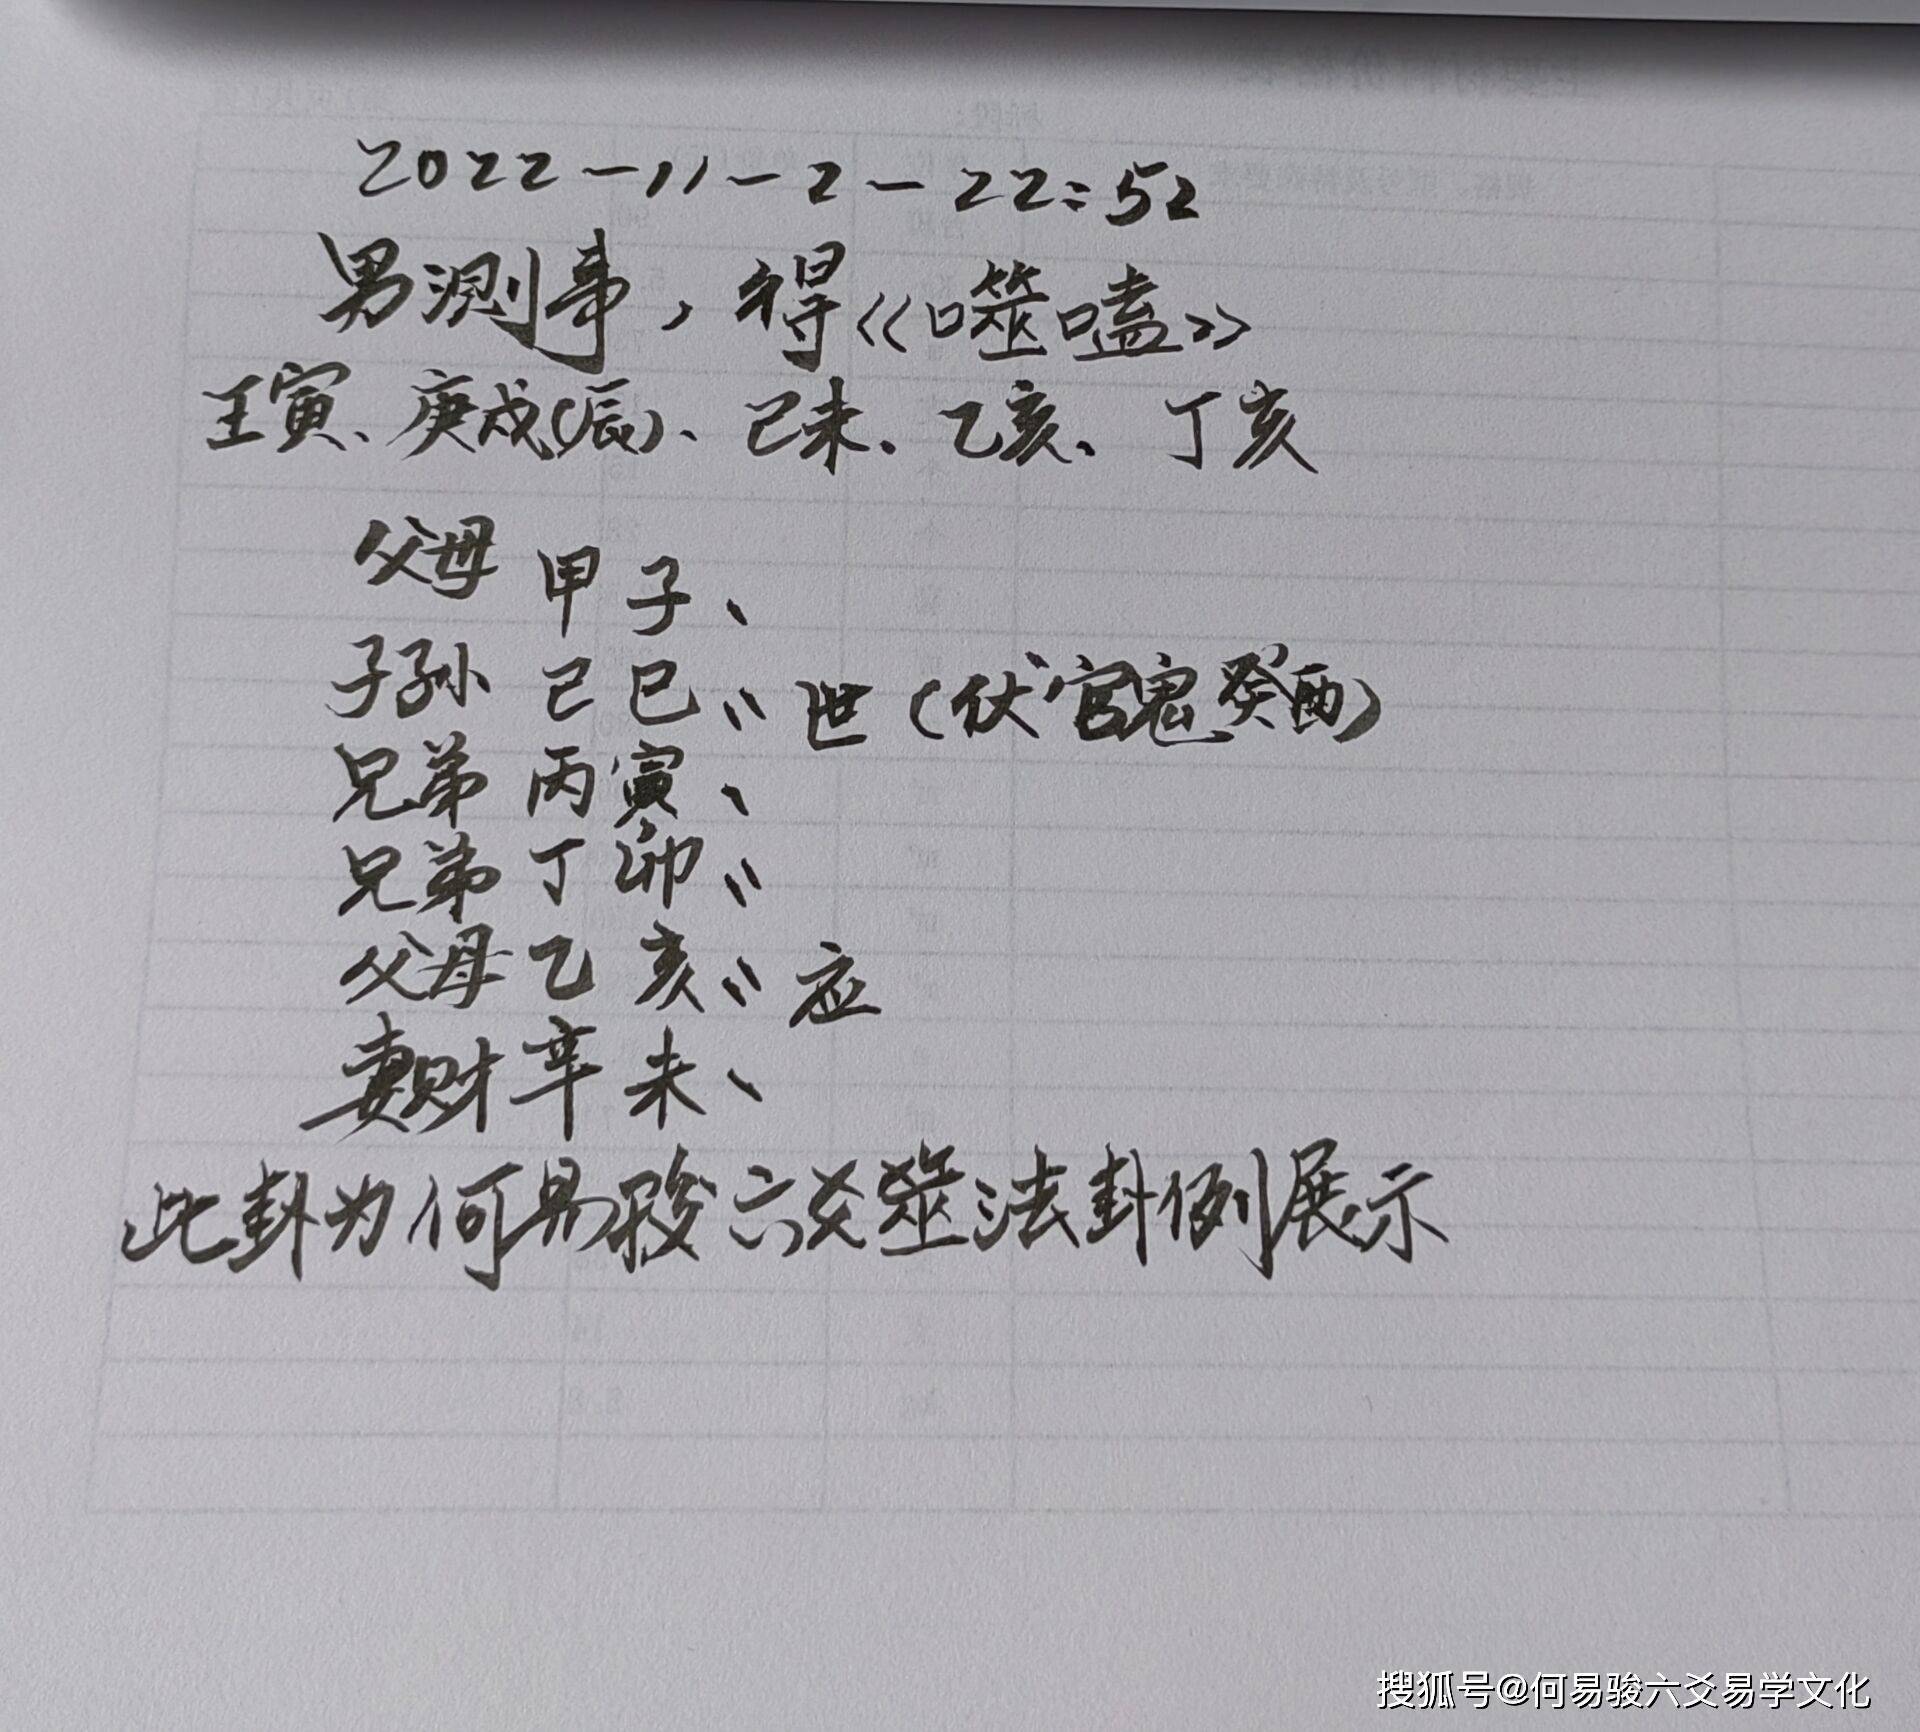 2022-11-2-22:52
男测事，得《噬嗑》
壬寅、庚戌(辰)、己未、乙亥、丁亥
父母 甲子、
子孙 己巳〃世(伏官鬼癸酉)
兄弟 丙寅、
兄弟 丁卯〃
父母 乙亥〃应
妻财 辛未、
此卦为何易骏六爻筮法卦例展示
搜狐号@何易骏六爻易学文化